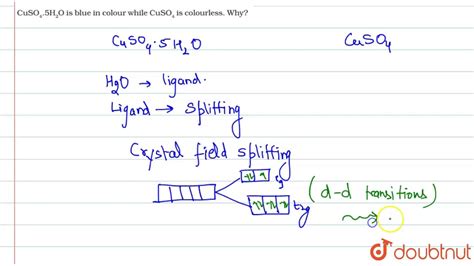 CuSO₄.5H₂O is blue in colour while CuSO₄ is colourless. Why?
CuSO₄·5H₂O CuSO₄
H₂O → ligand.
Ligand → Splitting
Crystal field splitting
eg
t₂g
(d-d transitions)
doubtnut